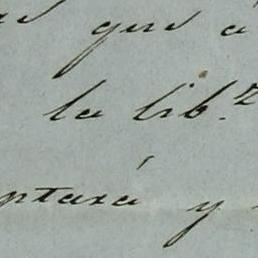 que á
la lib.z
ptará y